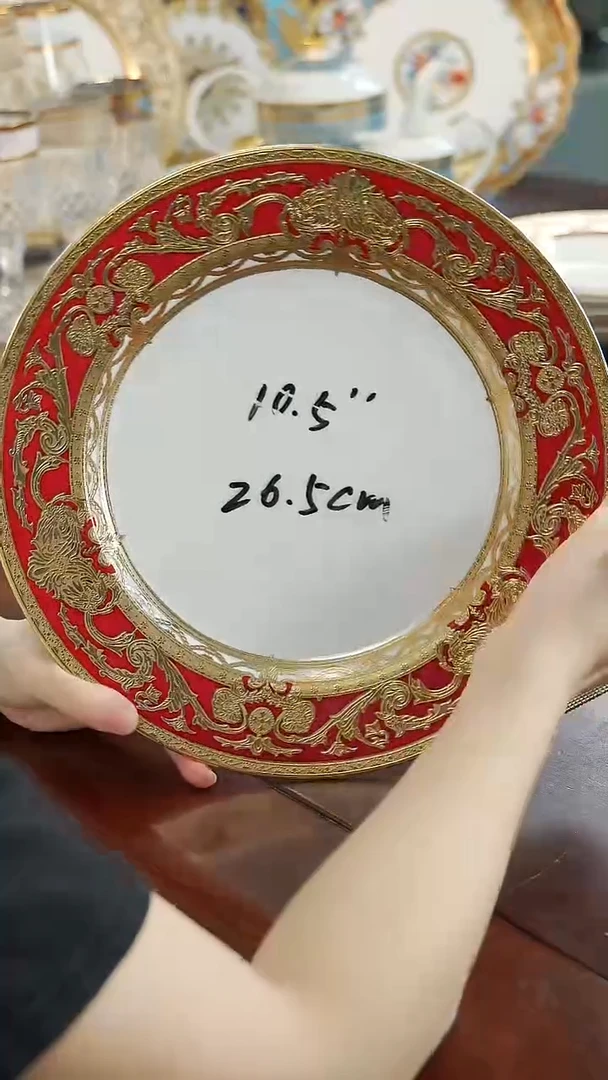 10.5''
26.5cm